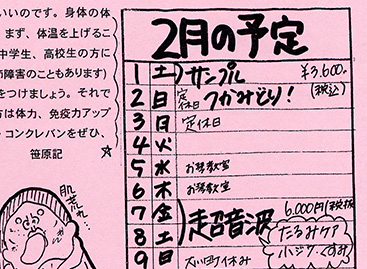 いいのです。身体の体
まず、体温を上げるこ
中学生、高校生の方に
節障害のこともあります)
をつけましょう。それで
方は体力、免疫力アップ
・コンクレバンをぜひ、
笹原記 ☆
肌荒れ…
2月の予定
1 土 サンプル ¥3,600。
2 日 定休日 つかみどり! (税込)
3 日 定休日
4 火
5 水 お琴教室
6 木 お琴教室
7 金 超音波 6,000円(税抜)
8 土 たるみケア
小ジワ くすみ
9 日 休み